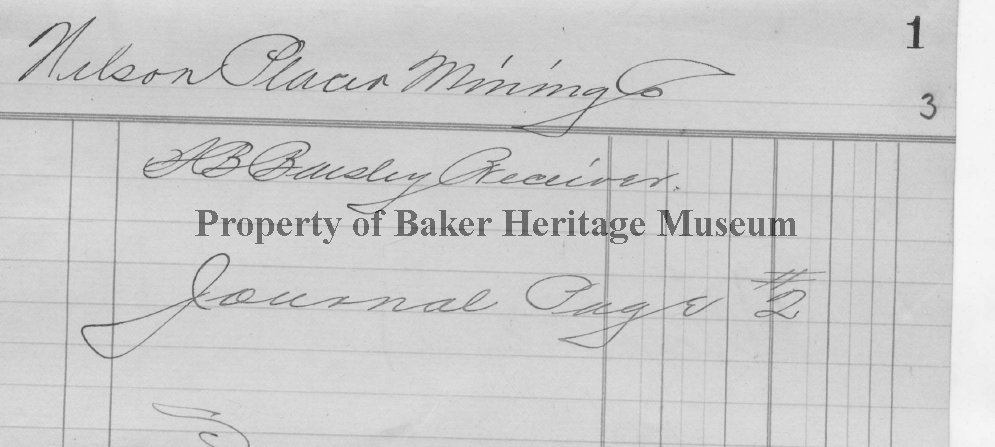 1
Nelson Placer Mining Co
3
Receiver.
Property of Baker Heritage Museum
Journal Page #2